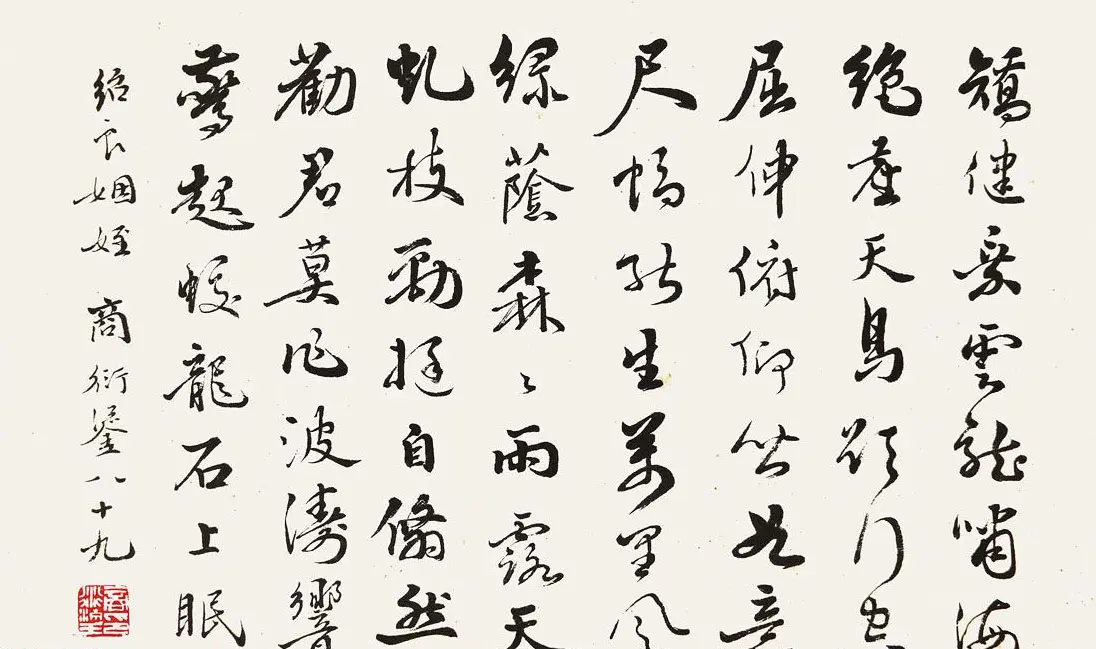 矯健乘雲龍嘯海
絕塵天馬行空
屈伸俯仰皆如意
尺幅能生萬里風
綠蔭森々雨露天
虬枝勁挺自翛然
勸君莫作波濤響
驚起蛟龍石上眠
紹良姻姪 商衍鎏八十九